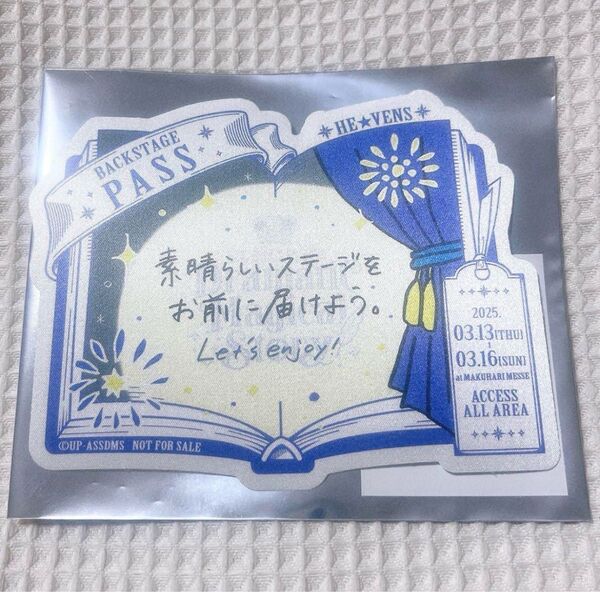 BACKSTAGE
PASS
HE★VENS
素晴らしいステージを
お前に届けよう。
Let's enjoy!
2025.
03.13(THU)
03.16(SUN)
at MAKUHARI MESSE
ACCESS
ALL AREA
©UP-ASSDMS NOT FOR SALE